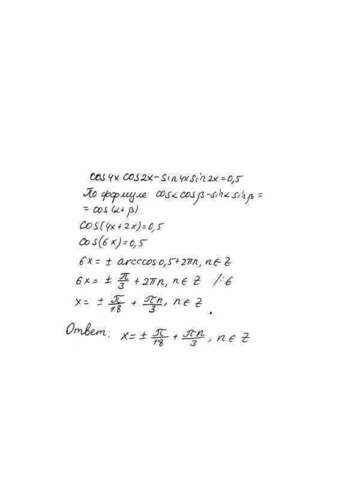 cos4x cos2x - sin4x sin2x = 0,5
По формуле cosα cosβ - sinα sinβ =
= cos(α+β)
cos(4x+2x)=0,5
cos(6x)=0,5
6x = ± arccos0,5+2πn, n∈Z
6x = ± π/3 + 2πn, n∈Z /:6
x = ± π/18 + πn/3, n∈Z.
Ответ: x = ± π/18 + πn/3, n∈Z